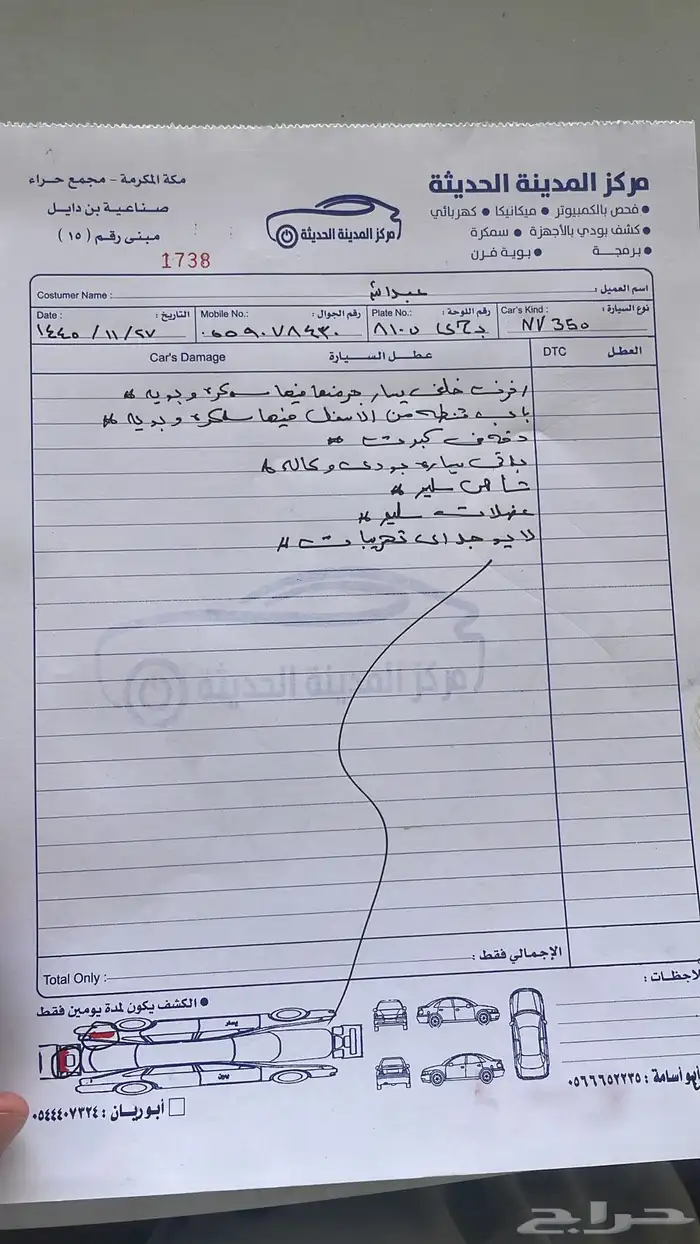 مركز المدينة الحديثة
● فحص بالكمبيوتر ● ميكانيكا ● كهربائي
● كشف بودي بالأجهزة ● سمكرة
● برمجة ● بوية فرن
مركز المدينة الحديثة
مكة المكرمة - مجمع حراء
صناعية بن دايل
مبنى رقم (١٥)
1738
اسم العميل : عبدالله Costumer Name :
نوع السيارة : Car's Kind : NV 350
رقم اللوحة : Plate No.: ٨١٠٥
رقم الجوال : Mobile No.:
التاريخ : Date : ١٤٤٠ / ١١ / ٢٧
العطل DTC عطل السيارة Car's Damage
رفرف خلفي يسار جزء منها فيها سمكره وبويه #
باب شنطه من الاسفل فيها سمكره وبويه #
باقي سياره بودي وكاله #
شاص سليم #
عضلات سليم #
لا يوجد اي تهريبات #
مركز المدينة الحديثة
الإجمالي فقط :
Total Only :
● الكشف يكون لمدة يومين فقط
يسار
يمين
أبو أسامة : ٠٥٦٦٦٥٢٢٣٥
أبو ريان : ٠٥٤٤٤٠٧٣٢٤
حراج